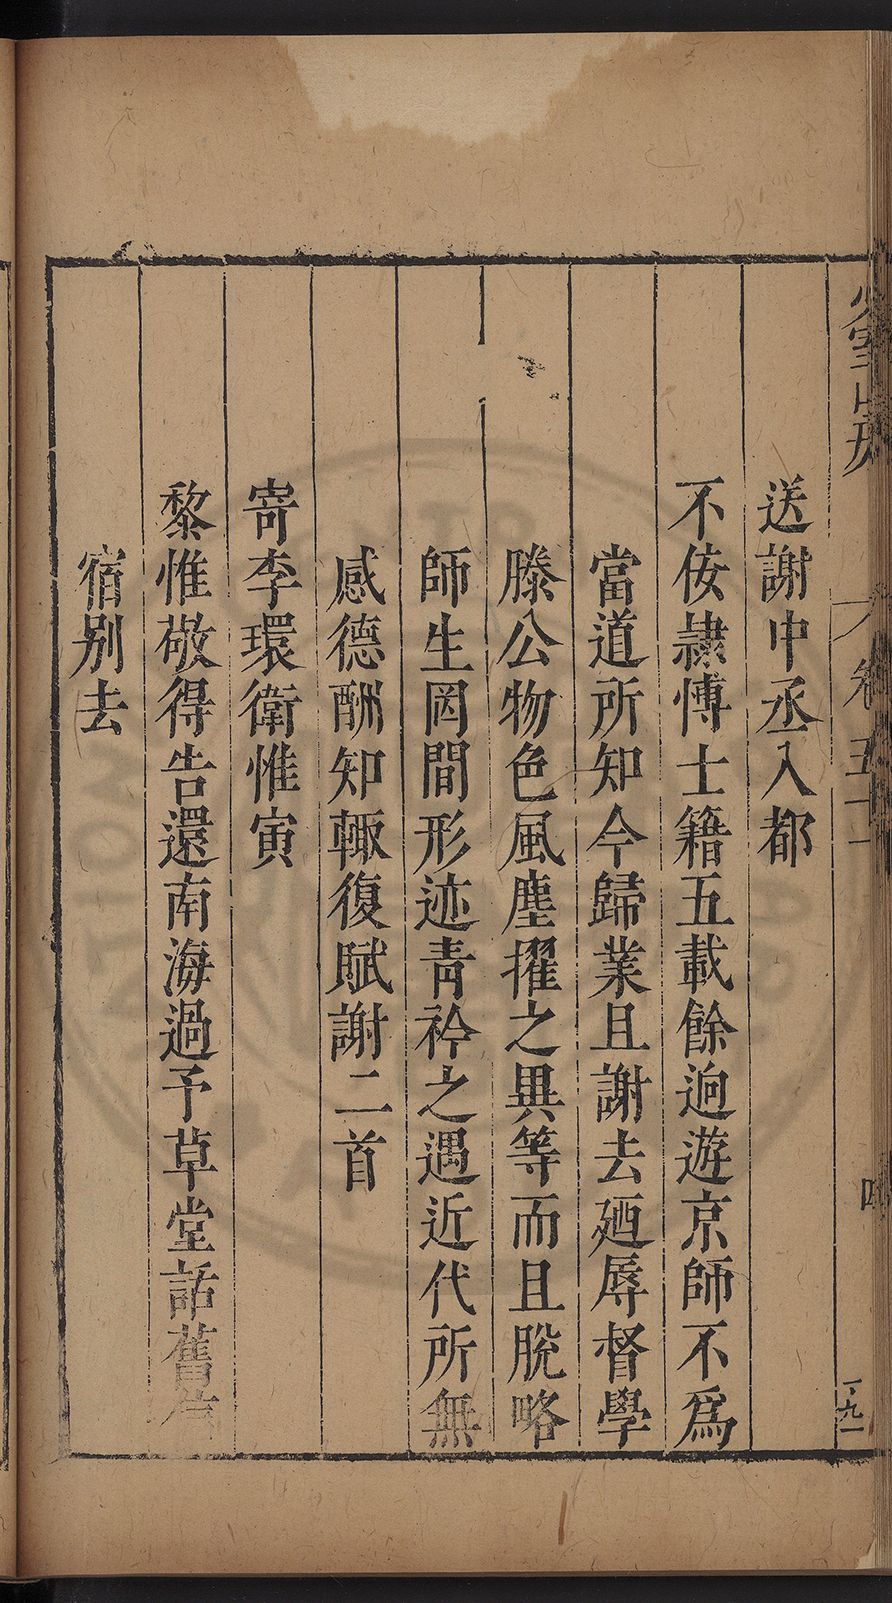 送謝中丞入都
不佞隷博士籍五載餘逈遊京師不爲
當道所知今歸業且謝去廼辱督學
滕公物色風塵擢之異等而且脫略
師生罔間形迹靑衿之遇近代所無
感德酬知輙復賦謝二首
寄李環衛惟寅
黎惟敬得告還南海過予草堂話舊
宿別去